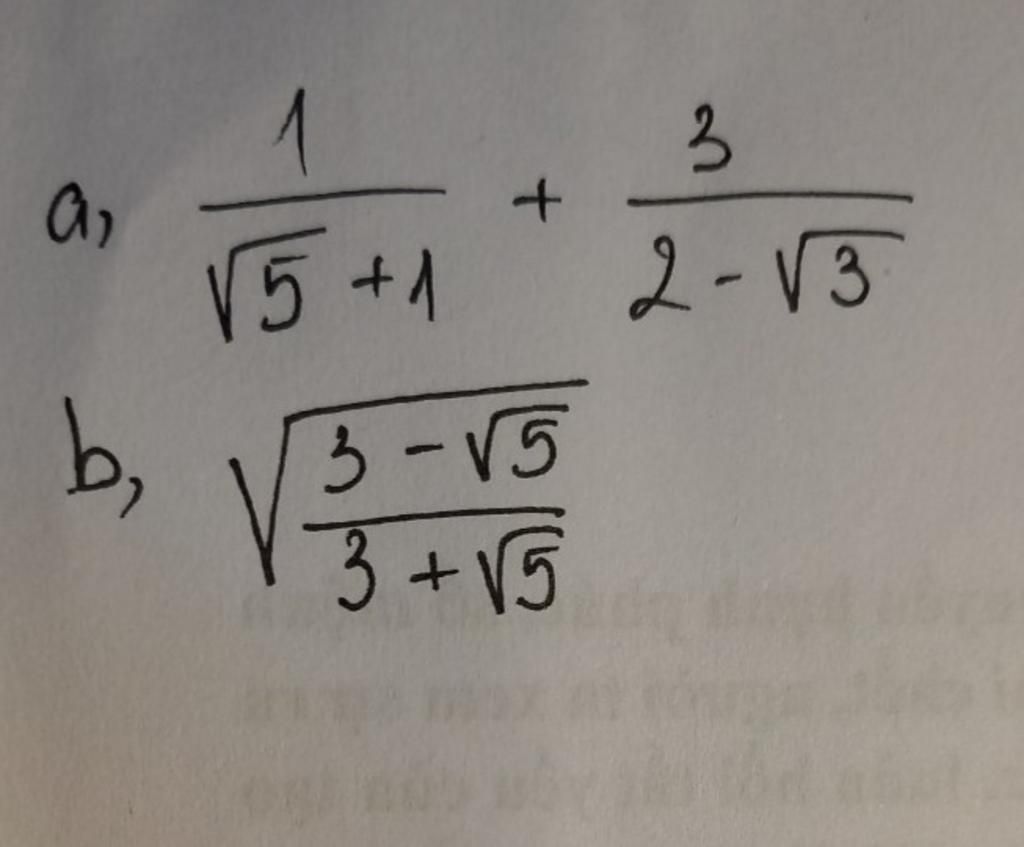 a, \frac{1}{\sqrt{5}+1} + \frac{3}{2-\sqrt{3}}
b, \sqrt{\frac{3-\sqrt{5}}{3+\sqrt{5}}}